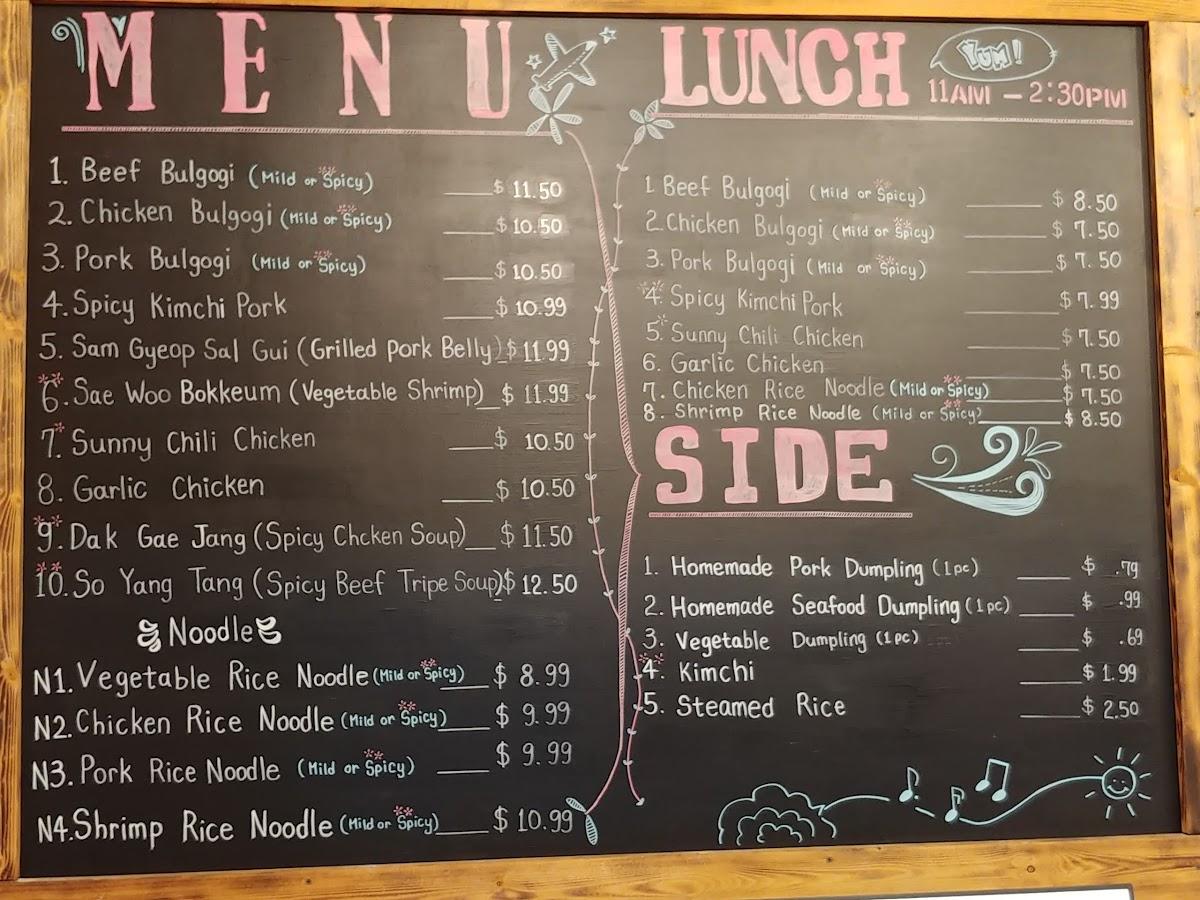 MENU
1. Beef Bulgogi (Mild or Spicy) ____$ 11.50
2. Chicken Bulgogi (Mild or Spicy) ___$ 10.50
3. Pork Bulgogi (Mild or Spicy) ___$ 10.50
4. Spicy Kimchi Pork ____$ 10.99
5. Sam Gyeop Sal Gui (Grilled Pork Belly)_$ 11.99
6. Sae Woo Bokkeum (Vegetable Shrimp)_$ 11.99
7. Sunny Chili Chicken ___$ 10.50
8. Garlic Chicken ____$ 10.50
9. Dak Gae Jang (Spicy Chcken Soup)__$ 11.50
10. So Yang Tang (Spicy Beef Tripe Soup)$ 12.50
Noodle
N1. Vegetable Rice Noodle (Mild or Spicy)___$ 8.99
N2. Chicken Rice Noodle (Mild or Spicy)___$ 9.99
N3. Pork Rice Noodle (Mild or Spicy) ___$ 9.99
N4. Shrimp Rice Noodle (Mild or Spicy)___$ 10.99
LUNCH
YUM!
11AM - 2:30PM
1 Beef Bulgogi (Mild or Spicy) ______$ 8.50
2. Chicken Bulgogi (Mild or Spicy) ______$ 7.50
3. Pork Bulgogi (Mild or Spicy) ______$ 7.50
4. Spicy Kimchi Pork ______$ 7.99
5. Sunny Chili Chicken ______$ 7.50
6. Garlic Chicken ______$ 7.50
7. Chicken Rice Noodle (Mild or Spicy)______$ 7.50
8. Shrimp Rice Noodle (Mild or Spicy)______$ 8.50
SIDE
1. Homemade Pork Dumpling (1pc) ____$ .79
2. Homemade Seafood Dumpling (1pc) ____$ .99
3. Vegetable Dumpling (1pc) ____$ .69
4. Kimchi ____$ 1.99
5. Steamed Rice ____$ 2.50